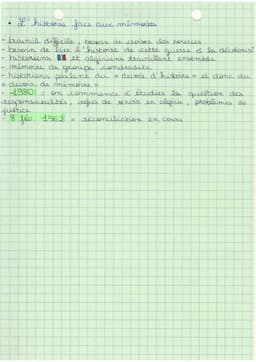 • L'histoire face aux mémoires
- travail difficile, besoin de croiser les sources
- besoin de lire l'histoire de cette guerre à la décolonis°
- historiens 🇫🇷 et algériens travaillent ensemble
- mémoires de groupe contredite
- historiens parlent du « devoir d'histoire » et donc du
« devoir de mémoire »
- 1980 : on commence à étudier la question des
responsabilités, refus de servir en algérie, problèmes de
justice
- 8 fév 1962 = réconciliation en cours